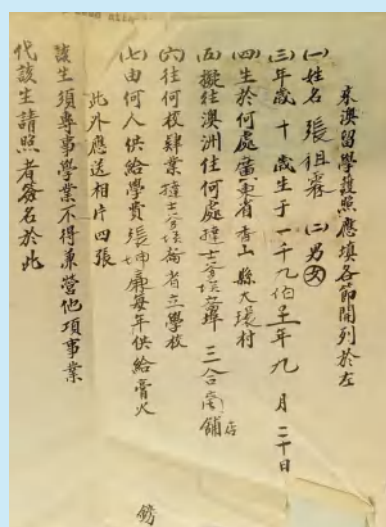 來澳留學護照應填各節開列於左
(一)姓名 張祖霖 (二)男女
(三)年歲 十 歲生于一千九伯 年 九 月 二十日
(四)生於何處廣東省香山縣大環村
(五)擬往澳洲住何處 士 埠 三合 舖店
(六)往何校肄業 士 省立學校
(七)由何人供給學費張 每年供給膏火 鎊
此外應送相片四張
該生須專事學業不得兼營他項事業
代該生請照者簽名於此